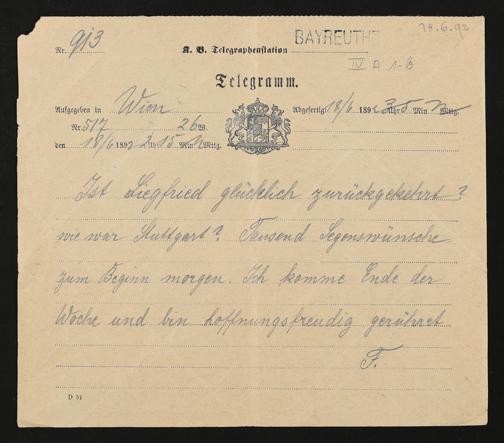 Nr. 913 K. B. Telegraphenstation BAYREUTH 18.6.92
IV A 1-3
Telegramm.
Aufgegeben in Wien Abgefertigt 18/6 1892 3 Uhr 5 Min N Mittg.
Nr. 517 26 W.
den 18/6 1892 2 Uhr 15 Min N Mittg.
Ist Siegfried glücklich zurückgekehrt?
wie war Stuttgart? Tausend Segenswünsche
zum Beginn morgen. Ich komme Ende der
Woche und bin hoffnungsfreudig gerühret
F.
D 51